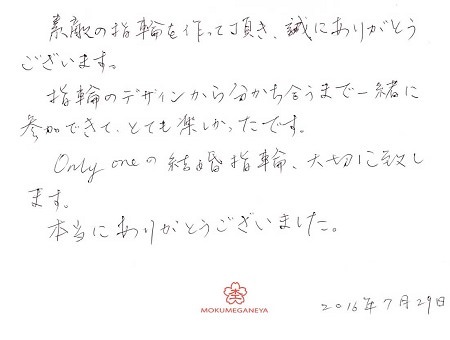 素敵の指輪を作って頂き、誠にありがとう
ございます。
指輪のデザインから分かち合うまで一緒に
参加できて、とても楽しかったです。
Only oneの結婚指輪、大切に致し
ます。
本当にありがとうございました。
杢
MOKUMEGANEYA
2016年7月29日